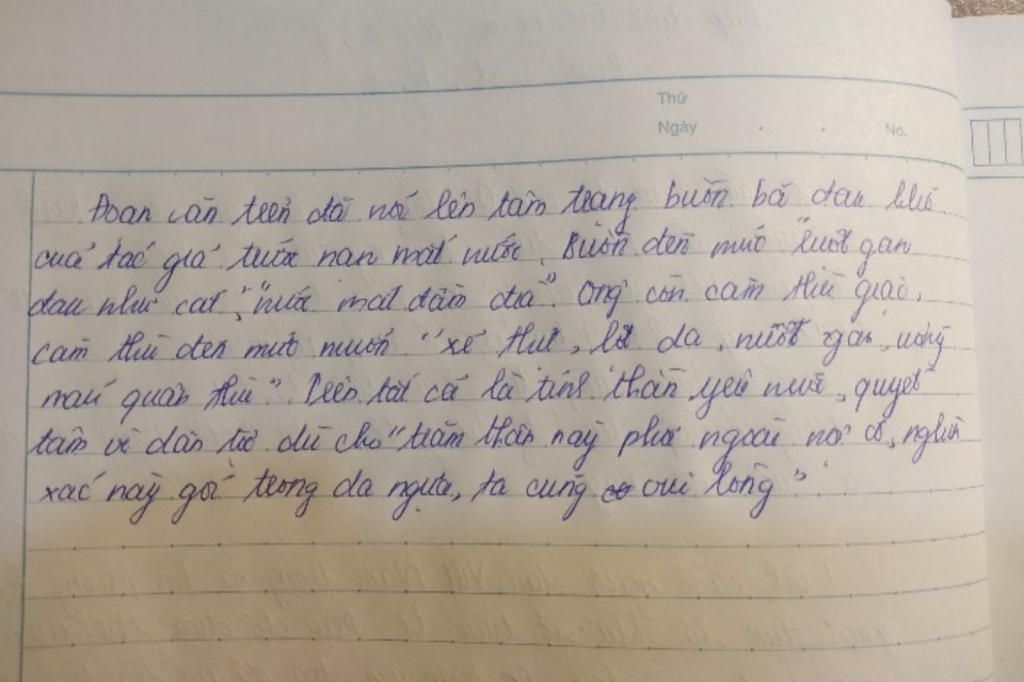 Thứ
Ngày
No.
Đoạn văn trên đã nói lên tâm trạng buồn bã đau khổ
của tác giả trước nạn mất nước. Buồn đến mức "ruột gan
đau như cắt", "nước mắt đầm đìa". Ông còn căm thù giặc,
căm thù đến mức muốn "xé thịt, lột da, nuốt gan, uống
máu quân thù". Trên tất cả là tinh thần yêu nước, quyết
tâm vì dân tộc dù cho "trăm thân này phơi ngoài nội cỏ, nghìn
xác này gói trong da ngựa, ta cũng vui lòng"